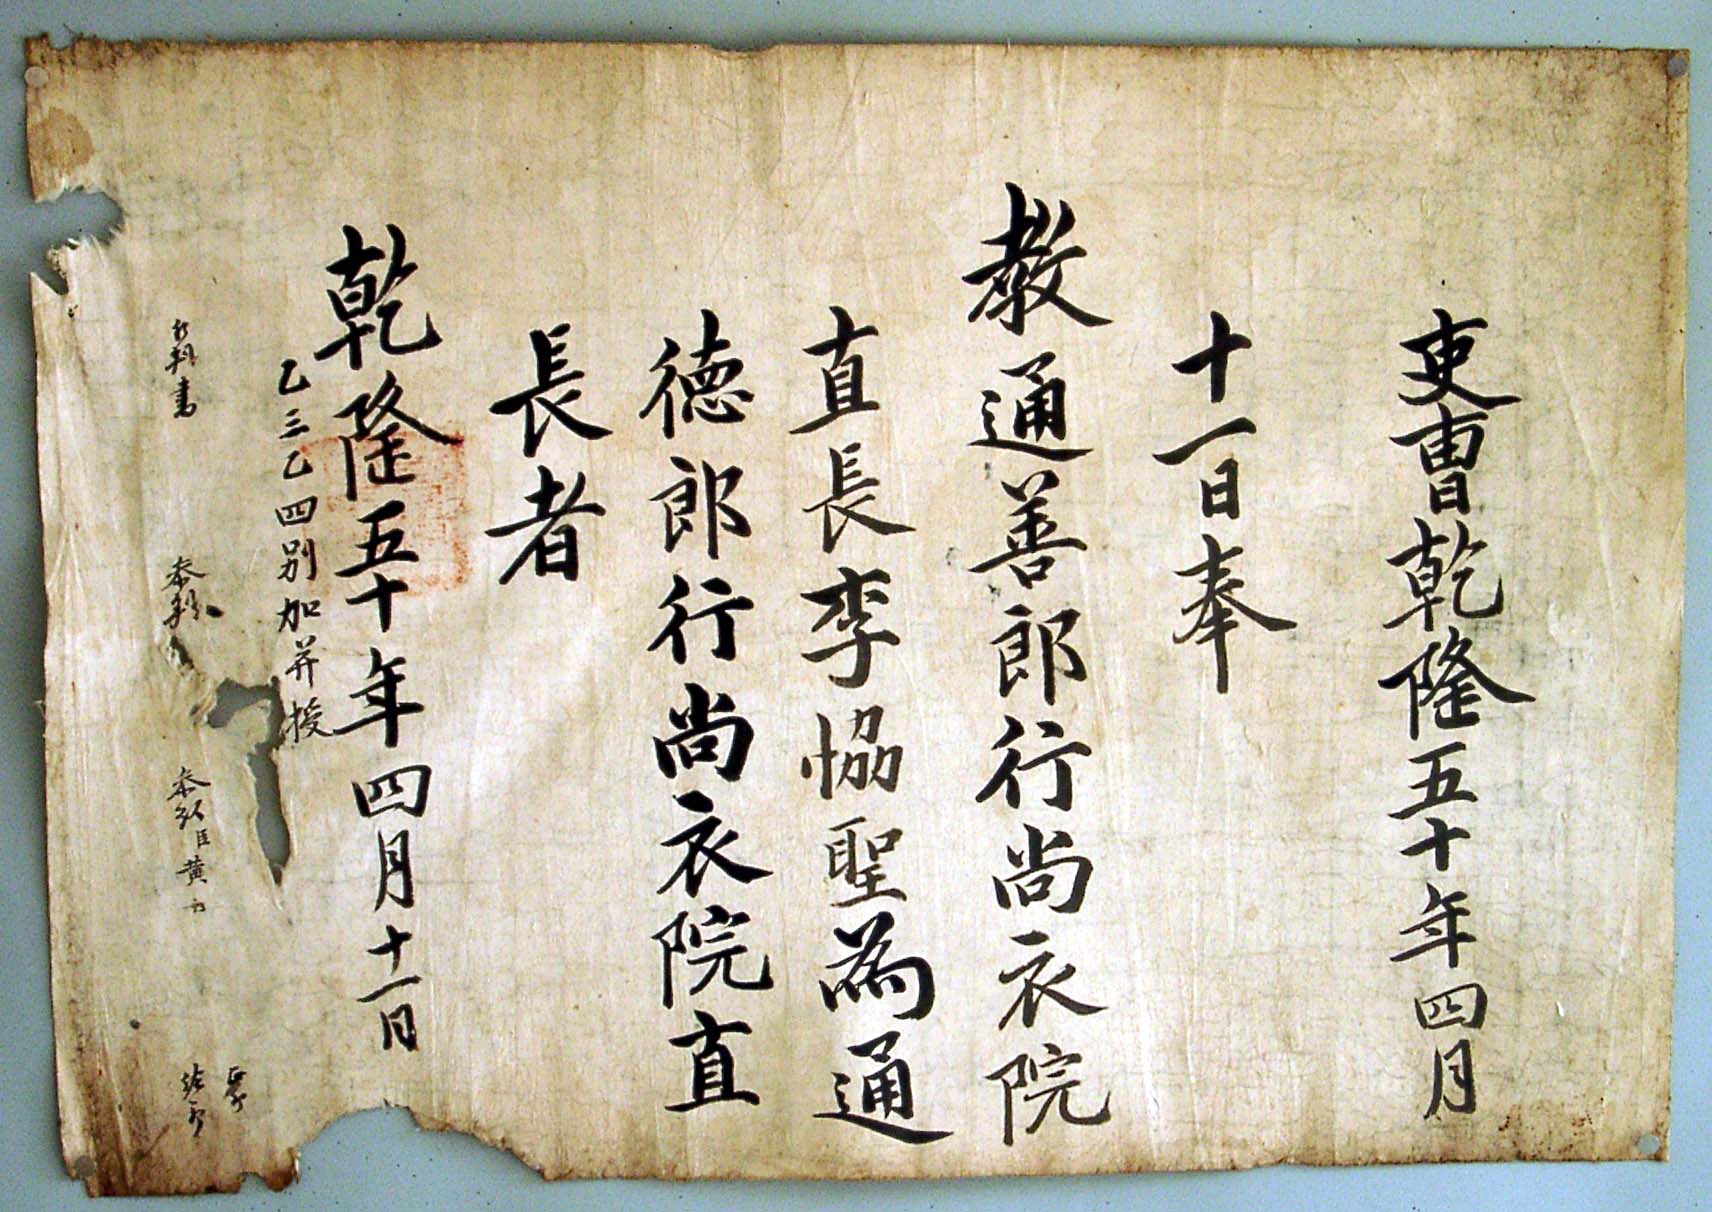 吏曹乾隆五十年四月
十一日奉
教通善郎行尚衣院
直長李恊聖為通
德郎行尚衣院直
長者
乾隆五十年四月十一日
乙三乙四別加并授
判書
參判
參議臣黃
正郎
佐郎